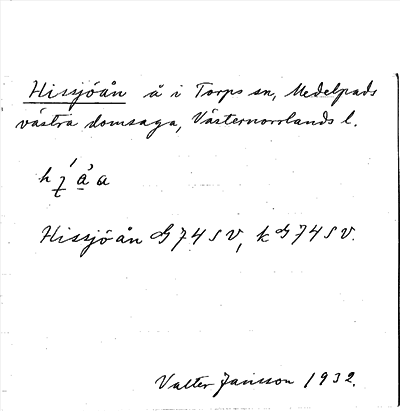 Hissjöån å i Torps sn, Medelpads
västra domsaga, Västernorrlands l.
Hissjöån G 74 S V, k G 74 S V.
Valter Jansson 1932.